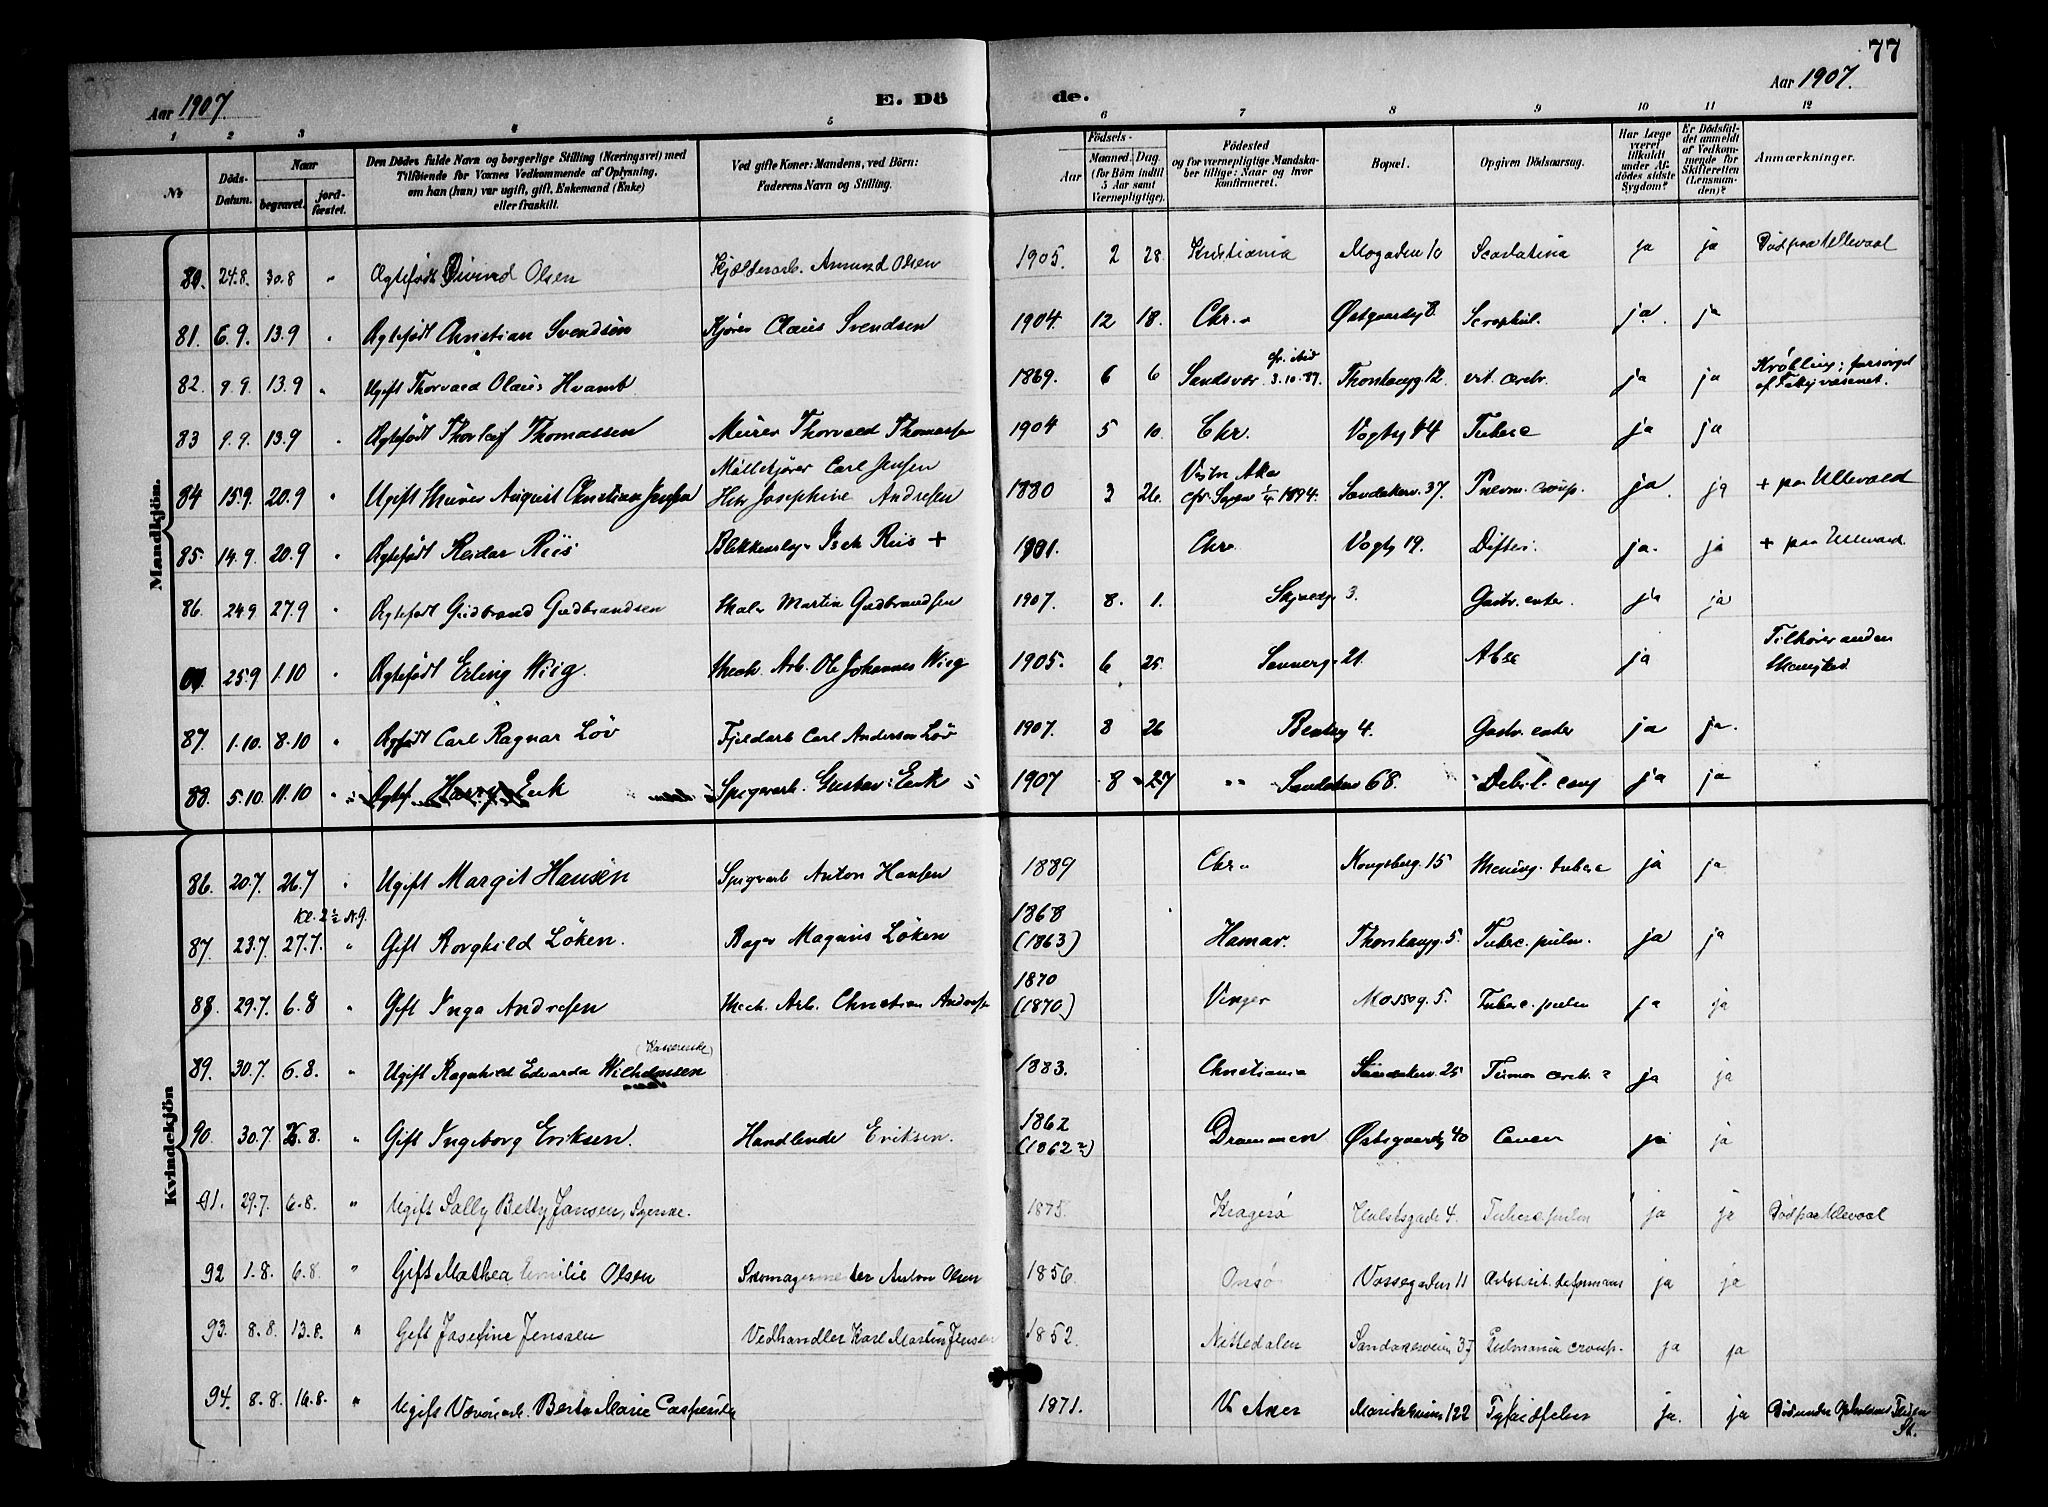 77
Aar 1907.
E. Dö
de.
Aar 1907.
1 2 3 4 5 6 7 8 9 10 11 12
No
Döds-Datum.
Naar
begravet.
jord-fæstet.
Den Dödes fulde Navn og borgerlige Stilling (Næringsvei) med
Tilföiende for Voxnes Vedkommende af Oplysning,
om han (hun) var ugift, gift, Enkemand (Enke)
eller fraskilt.
Ved gifte Koner: Mandens, ved Börn:
Faderens Navn og Stilling.
Födsels-
Aar
Maaned. Dag.
(for Börn indtil
5 Aar samt
Værnepligtige).
Födested
og for værnepligtige Mandska-
ber tillige: Naar og hvor
konfirmeret.
Bopæl.
Opgiven Dödsaarsag.
Har Læge
været
tilkaldt
under Af-
dödes sidste
Sygdom?
Er Dödsfal-
det anmeldt
af Vedkom-
mende for
Skifteretten
(Lensman-
den)?
Anmærkninger.
Mandkjön.
80. 24.8. 30.8 " Ægtefødt Eivind Olsen Kjælderarb. Amund Olsen 1905. 2 28. Kristiania Mogaden 10 Scarlatina ja ja Død paa Ullevaal
81. 6.9. 13.9 " Ægtefødt Christian Svendsen Kjører Claus Svendsen 1904. 12 18. Chr.a Østgaardsg 8 Scrophul. ja ja
82. 9.9. 13.9 " Ugift Thorvald Olaus Hvamb 1869. 6 6 Sandsvær 3.10.87. Thorshaugg 12. vit. cordis ja ja Krøbling; forsørget
af Fattigvæsenet.
83 9.9. 13.9 " Ægtefødt Thorleif Thomassen Murer Thorvald Thomassen 1904 5 10. Chr. Vogtsg 44 Tuberc ja ja
Møllekjører Carl Jensen
84 15.9 20.9 " Ugift Murer August Christian Jensen Josephine Andresen 1880 3 26. Vestre Aker 1894. Sandakerv. 37. Pnevm. croup. ja ja + paa Ullevaal
85. 14.9. 20.9 " Ægtefødt Reidar Riis Blikkensl. Isak Riis + 1901. Chr.a Vogtsg 19. Difteri. ja. ja + paa Ullevaal
86. 24.9 27.9 " Ægtefødt Gudbrand Gudbrandsen Maler Martin Gudbrandsen 1907. 8. 1. 3. Gastr. enter. ja ja
25.9 1.10 " Ægtefødt Erling Wiig. Mech. Arb. Ole Johannes Wiig 1905. 6 25. Sannerg. 21. ja Tilhører anden
Menighed.
87. 1.10. 8.10 " Ægtfødt Carl Ragnar Löv Fjeldarb Carl Anderson Löv 1907. 8 26 Bentseg 4. Gastr. enter ja ja.
88. 5.10 11.10 " Ægtef. Harry Eek Spigerarb. Gustav Eek 1907 8 27 " Sandakerv 68. Debil. cong ja ja
Kvindekjön
86. 20.7. 26.7 " Ugift Margit Hansen Spigerarb Anton Hansen 1889 Chr.a Kongsberg. 15 Mening. tuberc ja ja
Kl. 2½ N.g.
87. 23.7. 27.7. " Gift Borghild Løken. Bager Magnus Løken 1868
(1863) Hamar. Thorshaugg. 5. Tuberc. pulm. ja ja
88. 29.7. 6.8 " Gift Inga Andresen Mech. Arb. Christian Andresen 1870
(1870) Vinger Mossog. 5. Tuberc. pulm ja ja
(Kassererske)
89. 30.7. 6.8. " Ugift Ragnhild Edvarda Wilhelmsen 1883. Christiania Sandakerv. 25 Tumor cerebr. ? ja ja
90. 30.7 6.8. " Gift Ingeborg Eriksen. Handlende Eriksen. 1862
(1862?) Drammen Østgaardsg 40 Cancer ja ja
91. 29.7. 6.8. " Ugift Sally Betty Jansen, Syerske. 1875. Kragerø Hulstsgade 4. Tuberc. pulm ja ja Død paa Ullevaal
92 1.8. 6.8. " Gift Mathea Emilie Olsen Skomagermester Anton Olsen 1856. Onsø Vossegaden 11 Arthrit. deformans ja ja
93. 8.8. 13.8. " Gift Josefine Jenssen Vedhandler Karl Martin Jensen 1852. Nittedalen Sandakerveien 37 Pulmonia croup. ja ja
94. 8.8. 16.8. " Ugift Væverarb. Berte Marie Caspersen 1871. V. Aker Maridalsveien 122 Tyfoidfeber ja. ja Død under Ophold
St.